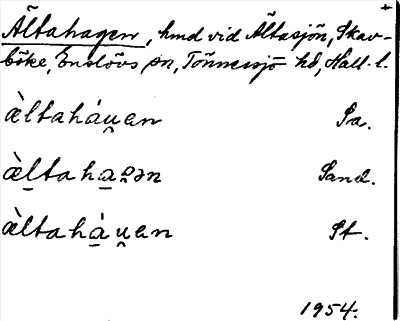 Ältahagen, hmd vid Ältasjön, Skav-
böke, Enslövs sn, Tönnersjö hd, Hall. l.
æ̀ltaháu̯an Sa.
æ̀l̲taha̲ꝛən Sand.
æ̀ltahá̲u̯an St.
1954.